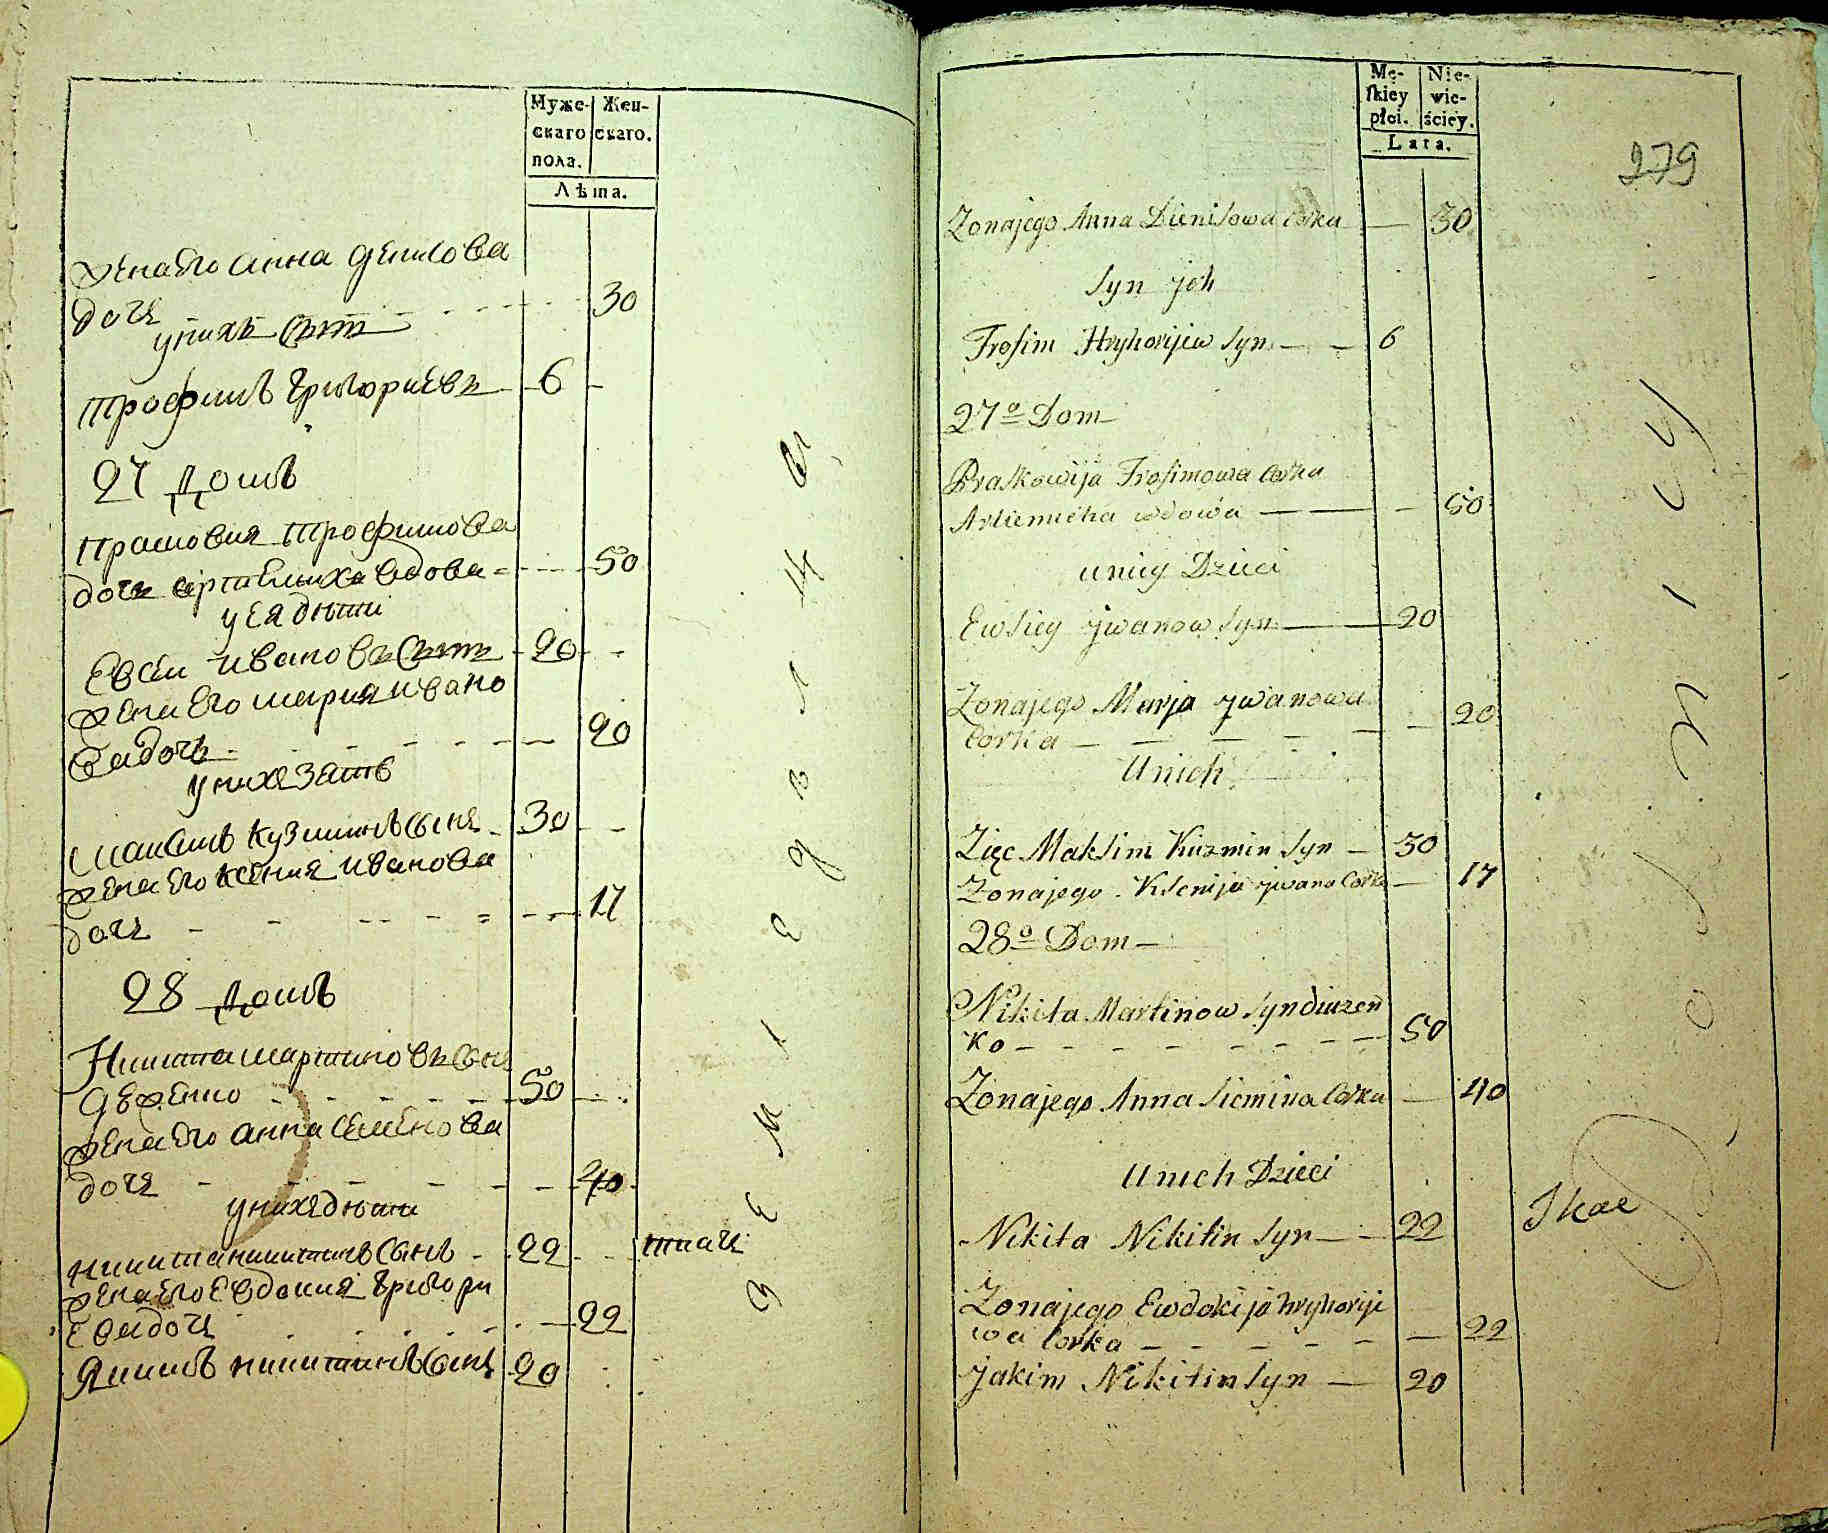 Муже-
скаго
пола.
Жен-
скаго.
Лѣта.
жена его анна денисова
дочь 30
у нихъ сынъ
трофимъ григориевъ 6
27 домъ
прасковия трофимова
дочь артемиха вдова 50
у ея дѣти
Евсеи ивановъ сынъ 20
жена его мария ивано
ва дочь 20
у нихъ зять
максимъ кузминъ сынъ 30
жена его ксения иванова
дочь 17
28 домъ
Никита мартиновъ сынъ
дюженко 50
жена его анна семенова
дочь 40
у нихъ дѣти
никита никитинъ сынъ 22 ткачъ
жена его Евдокия григори
ева дочь 22
якимъ никитинъ сынъ 20
земледелцы
Mę-
skiey
płci.
Nie-
wie-
ściey.
Lata.
279
Zonajego Anna Dienisowa Corka 30
Syn jch
Trofim Hryhorijew Syn 6
27º Dom
Praskowija Trofimowa Corka
Artiemicha wdowa 50
uniey Dzieci
Ewsiey jwanow Syn 20
Zonajego Marja jwanowa 20
Corka
Unich
Zięc Maksim Kuzmin Syn 30
Zonajego Ksenija jwana Corka 17
28º Dom
Nikita Martinow Syn diuzen
ko 50
Zonajego Anna Siemina Corka 40
Unich Dzieci
Nikita Nikitin Syn 22 Tkac
Zonajego Ewdokija hryhorije
wa Corka 22
Jakim Nikitin Syn 20